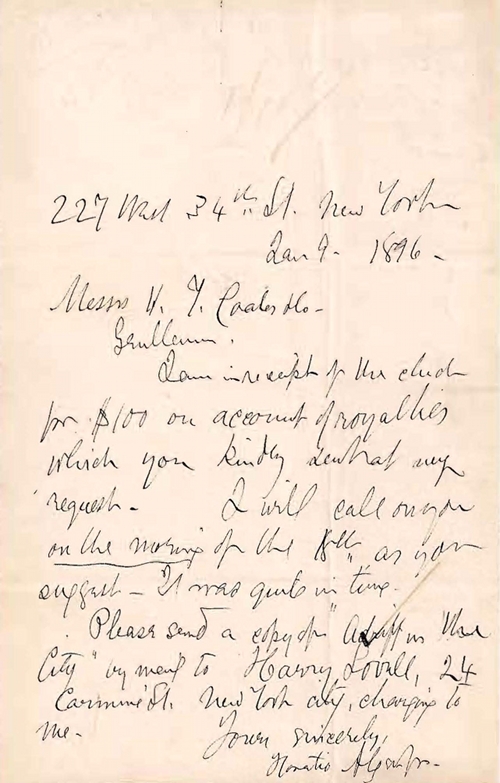 227 West 34th St. New York
Jan 9 - 1896 -
Messrs H. T. Coates & Co -
Gentlemen,
I am in receipt of the check
for $100 on account of royalties
which you kindly sent at my
request - I will call on you
on the morning of the as you
suggest - It was quite in time.
Please send a copy of "Adrift in the
City" by mail to Harry Lovell, 24
Carmine St. New York city, charging to
me - Yours sincerely,
Horatio Alger Jr.